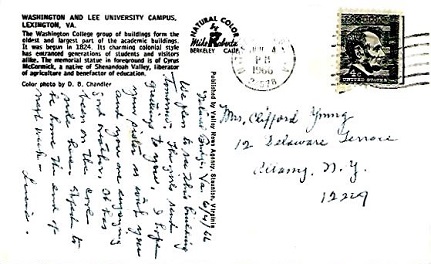 WASHINGTON AND LEE UNIVERSITY CAMPUS,
LEXINGTON, VA.
The Washington College group of buildings form the
oldest and largest part of the academic buildings.
It was begun in 1824. Its charming colonial style
has entranced generations of students and visitors
alike. The memorial statue in foreground is of Cyrus
McCormick, a native of Shenandoah Valley, liberator
of agriculture and benefactor of education.
Color photo by D. B. Chandler
NATURAL COLOR
Mike Roberts
BERKELEY
Published by Valley News Agency, Staunton, Virginia
1966
PM
4¢
Natural Bridge Va 6/4/66
We plan to see this building
tomorrow. The girls send
greetings to you. I hope
your sister is with you
and you are enjoying
good weather. It has
been on the cool
side here. Expect to
be home the end of
next week —
Mrs. Clifford Young
12 Delaware Terrace
Albany, N.Y.
12209